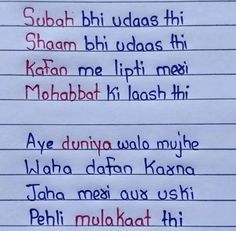 Subah bhi udaas thi
Shaam bhi udaas thi
Kafan me lipti meri
Mohabbat ki laash thi
Aye duniya walo mujhe
Waha dafan Karna
Jaha meri aur uski
Pehli mulakaat thi